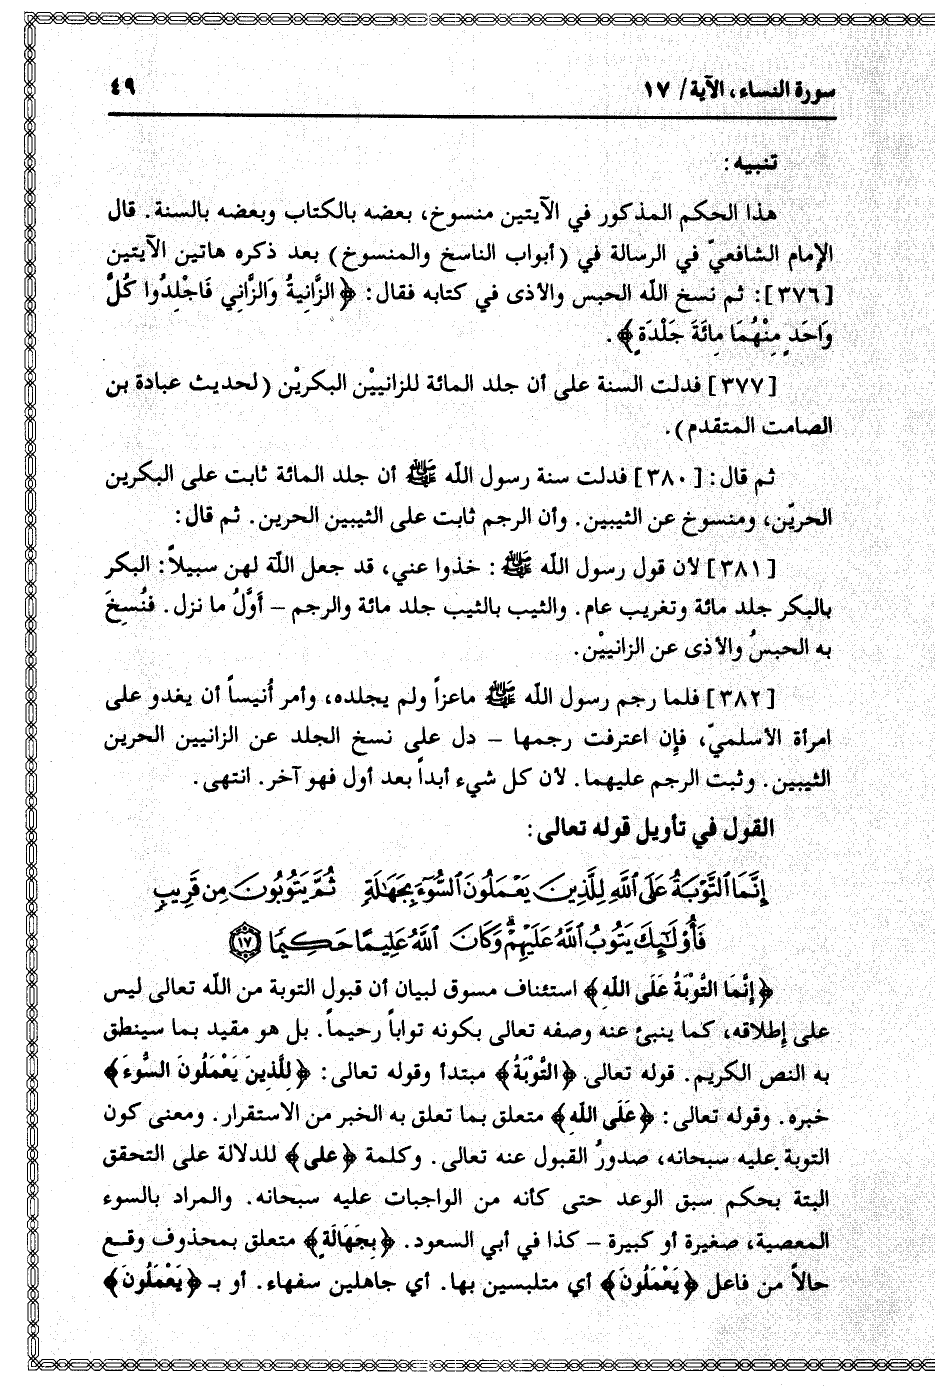 سورة النساء، الآية/ ١٧
٤٩
تنبيه:
هذا الحكم المذكور في الآيتين منسوخ، بعضه بالكتاب وبعضه بالسنة. قال
الإمام الشافعيّ في الرسالة في (أبواب الناسخ والمنسوخ) بعد ذكره هاتين الآيتين
[٣٧٦]: ثم نسخ الله الحبس والأذى في كتابه فقال: ﴿الزَّانِيةُ وَالزَّانِي فَاجْلِدُوا كُلَّ
وَاحَدٍ مِنْهُمَا مِائَةَ جَلْدَةٍ﴾.
[٣٧٧] فدلت السنة على أن جلد المائة للزانييْن البكريْن (لحديث عبادة بن
الصامت المتقدم).
ثم قال: [٣٨٠] فدلت سنة رسول الله ﷺ أن جلد المائة ثابت على البكرين
الحريْن، ومنسوخ عن الثيبين. وأن الرجم ثابت على الثيبين الحرين. ثم قال:
[٣٨١] لأن قول رسول الله ﷺ: خذوا عني، قد جعل اللهَ لهن سبيلاً: البكر
بالبكر جلد مائة وتغريب عام. والثيب بالثيب جلد مائة والرجم – أَوَّلُ ما نزل. فنُسِخَ
به الحبسُ والأذى عن الزانييْن.
[٣٨٢] فلما رجم رسول الله ﷺ ماعزاً ولم يجلده، وأمر أُنيساً أن يغدو على
امرأة الأسلميّ، فإن اعترفت رجمها – دل على نسخ الجلد عن الزانيين الحرين
الثيبين. وثبت الرجم عليهما. لأن كل شيء أبداً بعد أول فهو آخر. انتهى.
القول في تأويل قوله تعالى:
إِنَّمَا ٱلتَّوْبَةُ عَلَى ٱللَّهِ لِلَّذِينَ يَعْمَلُونَ ٱلسُّوٓءَ بِجَهَٰلَةٍ ثُمَّ يَتُوبُونَ مِن قَرِيبٍ
فَأُو۟لَٰٓئِكَ يَتُوبُ ٱللَّهُ عَلَيْهِمْ ۗ وَكَانَ ٱللَّهُ عَلِيمًا حَكِيمًا ١٧
﴿إِنَّمَا التَّوْبَةُ عَلَى اللهِ﴾ استئناف مسوق لبيان أن قبول التوبة من الله تعالى ليس
على إطلاقه، كما ينبئ عنه وصفه تعالى بكونه تواباً رحيماً. بل هو مقيد بما سينطق
به النص الكريم. قوله تعالى ﴿التَّوْبَةُ﴾ مبتدأ وقوله تعالى: ﴿لِلَّذِينَ يَعْمَلُونَ السُّوءَ﴾
خبره. وقوله تعالى: ﴿عَلَى اللهِ﴾ متعلق بما تعلق به الخبر من الاستقرار. ومعنى كون
التوبة عليه سبحانه، صدورُ القبول عنه تعالى. وكلمة ﴿على﴾ للدلالة على التحقق
البتة بحكم سبق الوعد حتى كأنه من الواجبات عليه سبحانه. والمراد بالسوء
المعصية، صغيرة أو كبيرة – كذا في أبي السعود. ﴿بِجَهَالَةٍ﴾ متعلق بمحذوف وقع
حالاً من فاعل ﴿يَعْمَلُونَ﴾ أي متلبسين بها. أي جاهلين سفهاء. أو بـ ﴿يَعْمَلُونَ﴾